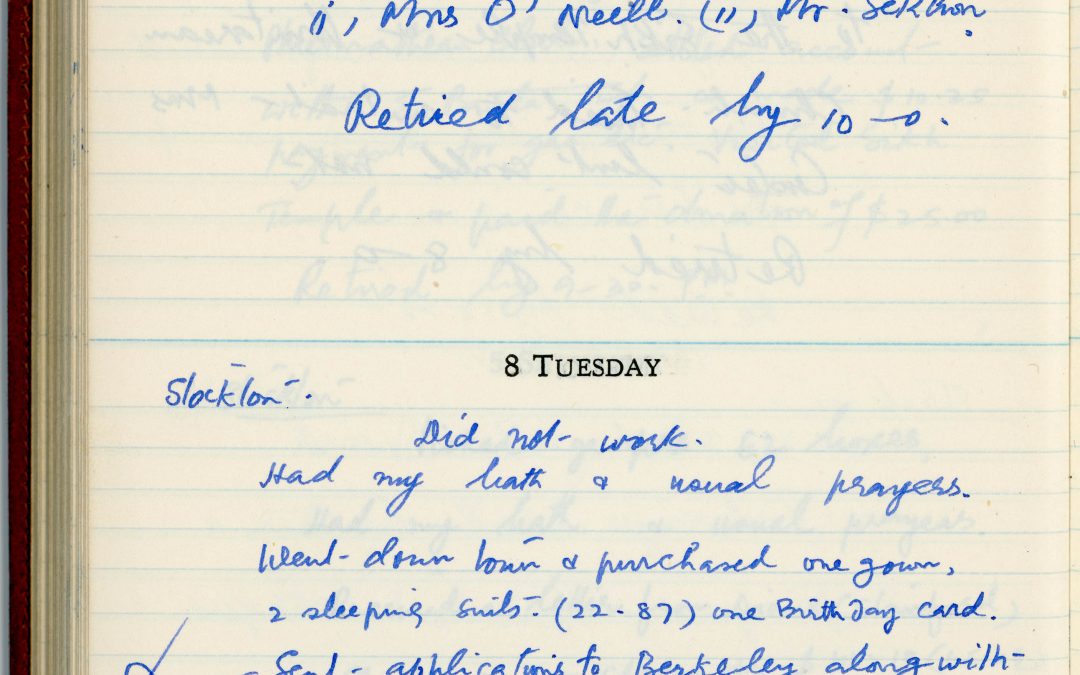 11, Mrs O' Neill. (11, Mr. Sekhon.
Retried late by 10-0.
8 TUESDAY
Stockton.
Did not work.
Had my bath & usual prayers.
Went down town & purchased one gown,
2 sleeping suits. (22-87) one Birthday card.
Sent applications to Berkeley along with